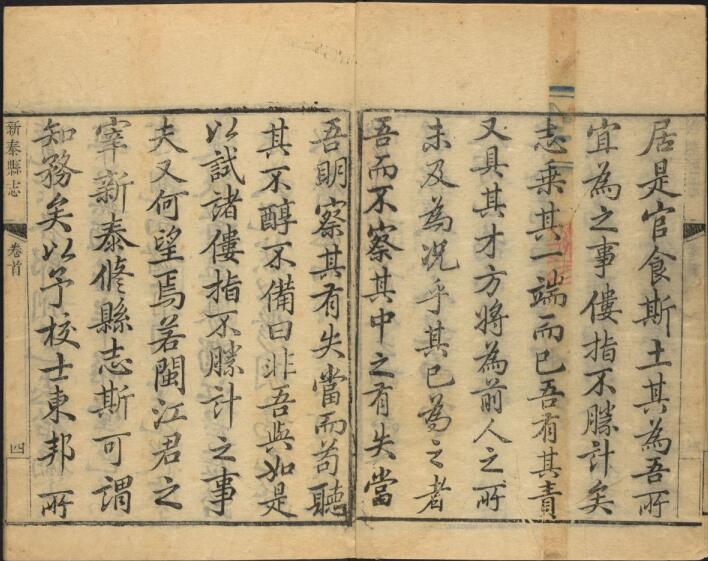 居是官食斯土其為吾所
宜為之事僂指不勝計矣
志乗其一端而已吾有其責
又具其才方將為前人之所
未及為况乎其已為之者
吾而不察其中之有失當
吾明察其有失當而苟聽
其不醇不備曰非吾與如是
以試諸僂指不勝計之事
夫又何望焉若閩江君之
宰新泰修縣志斯可謂
知務矣以予校士東邦所
新泰縣志 卷首 四